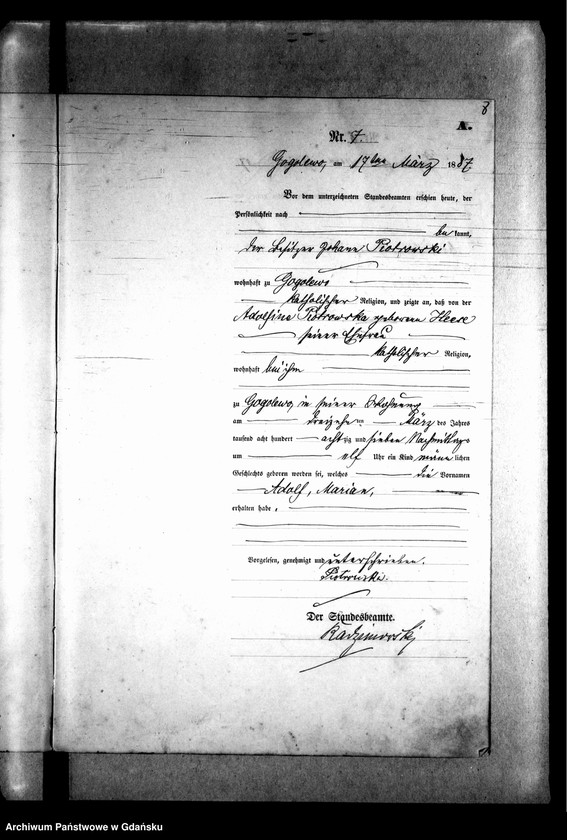 8
A.
Nr. 7.
Gogolewo, am 17ten März 1887
Vor dem unterzeichneten Standesbeamten erschien heute, der
Persönlichkeit nach
bekannt,
der Besitzer Johann Piotrowski
wohnhaft zu Gogolewo
katholischer Religion, und zeigte an, daß von der
Piotrowska geborenen Heese
seiner Ehefrau
katholischer Religion,
wohnhaft bei ihm
zu Gogolewo, in seiner Wohnung
am dreizehnten März des Jahres
tausend acht hundert achtzig und sieben Nachmittags
um elf Uhr ein Kind männlichen
Geschlechts geboren worden sei, welches die Vornamen
Adolf, Marian,
erhalten habe.
Vorgelesen, genehmigt und unterschrieben.
Piotrowski.
Der Standesbeamte.
Archiwum Państwowe w Gdańsku